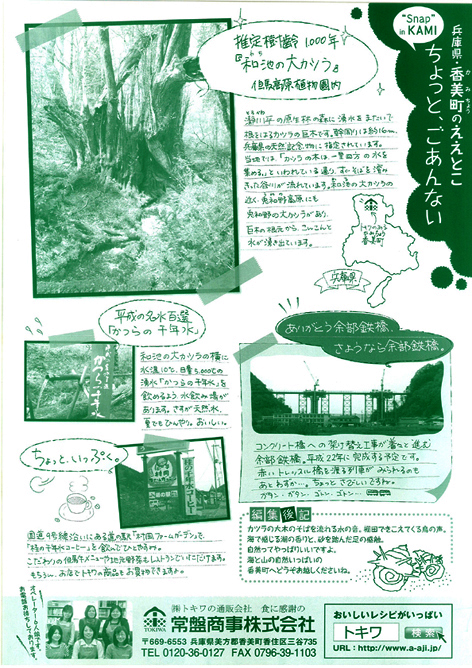 "Snap"
in KAMI
兵庫県・香美町のええとこ
かみちょう
ちょっと、ごあんない
推定樹齢 1,000年
『和池の大カツラ』
但馬高原植物園内
瀞川平の原生林の森に湧水をまたいで
根をはるカツラの巨木です。幹周りは約16m、
兵庫県の天然記念物に指定されています。
当地では、「カツラの木は、一里四方の水を
集める。」といわれている通り、すぐそばを澄み
きった谷川が流れています。和池の大カツラの
近く兎和野高原にも
兎和野の大カツラがあり、
巨木の根元から、こんこんと
水が湧き出ています。
香美町
兵庫県
平成の名水百選
「かつらの千年水」
和池の大カツラの横に
水温10℃、日量5,000tの
湧水「かつらの千年水」を
飲めるよう、水飲み場が
あります。さすが天然水、
夏でもひんやり。おいしい。
ありがとう余部鉄橋、
さようなら余部鉄橋。
コンクリート橋への架け替え工事が着々と進む
余部鉄橋。平成22年に完成する予定です。
赤いトレッスル橋を渡る列車がみられるのも
あとわずか…。ちょっとさびしいですね。
ガタン・ガタン、ゴトン、ゴトン…
ちょっと、いっぷく。
国道9号線沿いにある道の駅「村岡ファームガーデン」で、
「桂の千年水コーヒー」を飲んでひとやすみ。
こだわりの但馬牛メニューや地元野菜もレストランでいただけます。
もちろん、お店でトキワの商品もお買物できますよ。
編集後記
カツラの大木のそばを流れる水の音。棚田できこえてくる鳥の声。
海で感じる潮の香りと、砂を踏んだ足の感触。
自然ってやっぱりいいですよ。
海と山の自然いっぱいの
香美町へどうぞお越しくださいね。
オペレーター6人組です。
お電話お待ちしております。
㈱トキワの通販会社 食に感謝の
TOKIWA
常盤商事株式会社
〒669-6553 兵庫県美方郡香美町香住区三谷735
TEL 0120-36-0127 FAX 0796-39-1103
おいしいレシピがいっぱい
トキワ 検索
URL : http://www.a-aji.jp/